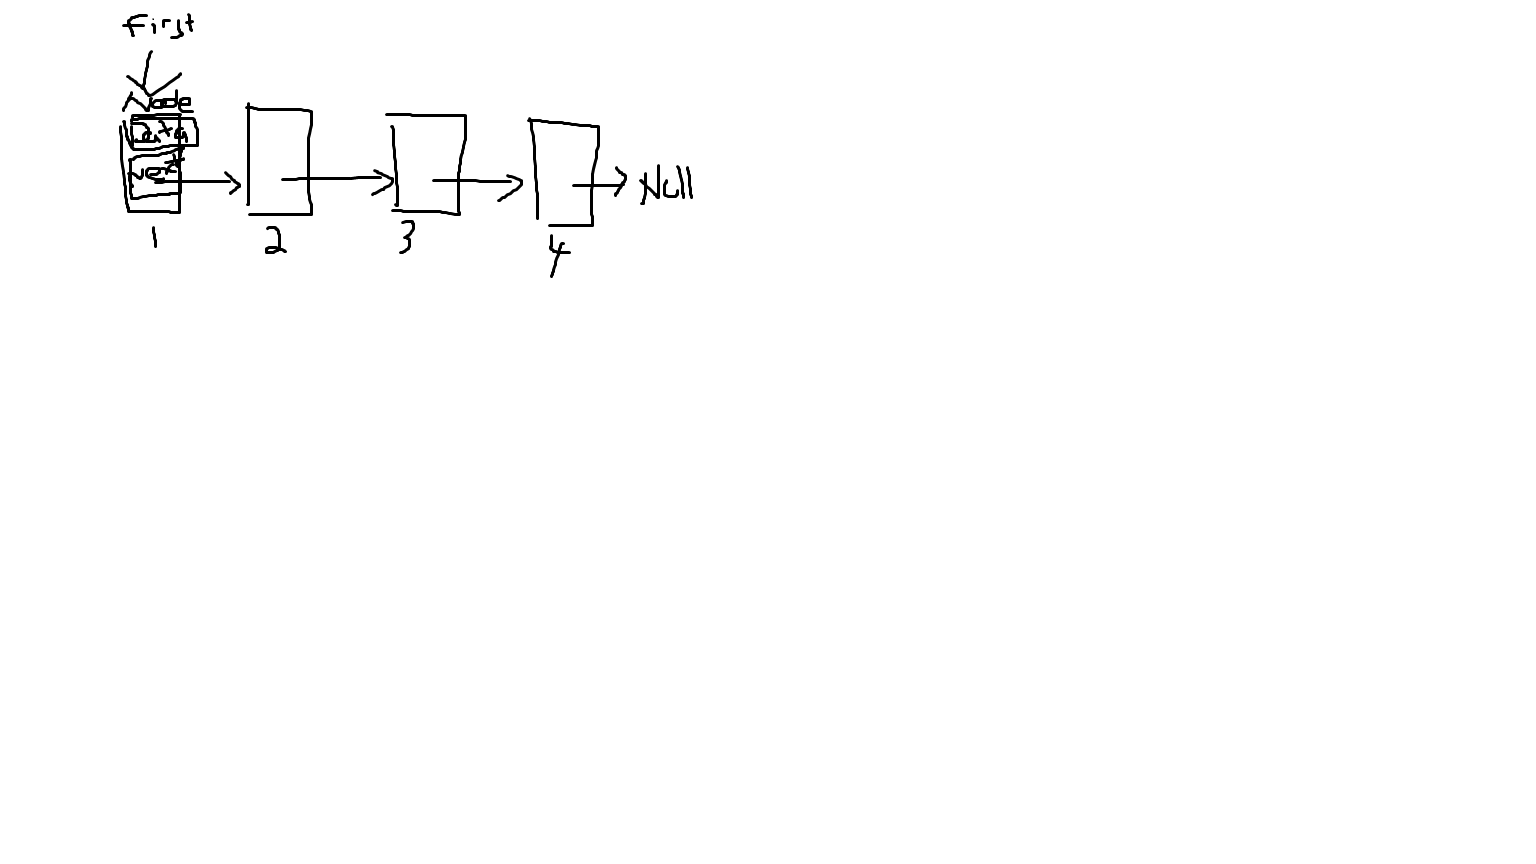 First
Node
Data
Next
Null
1 2 3 4